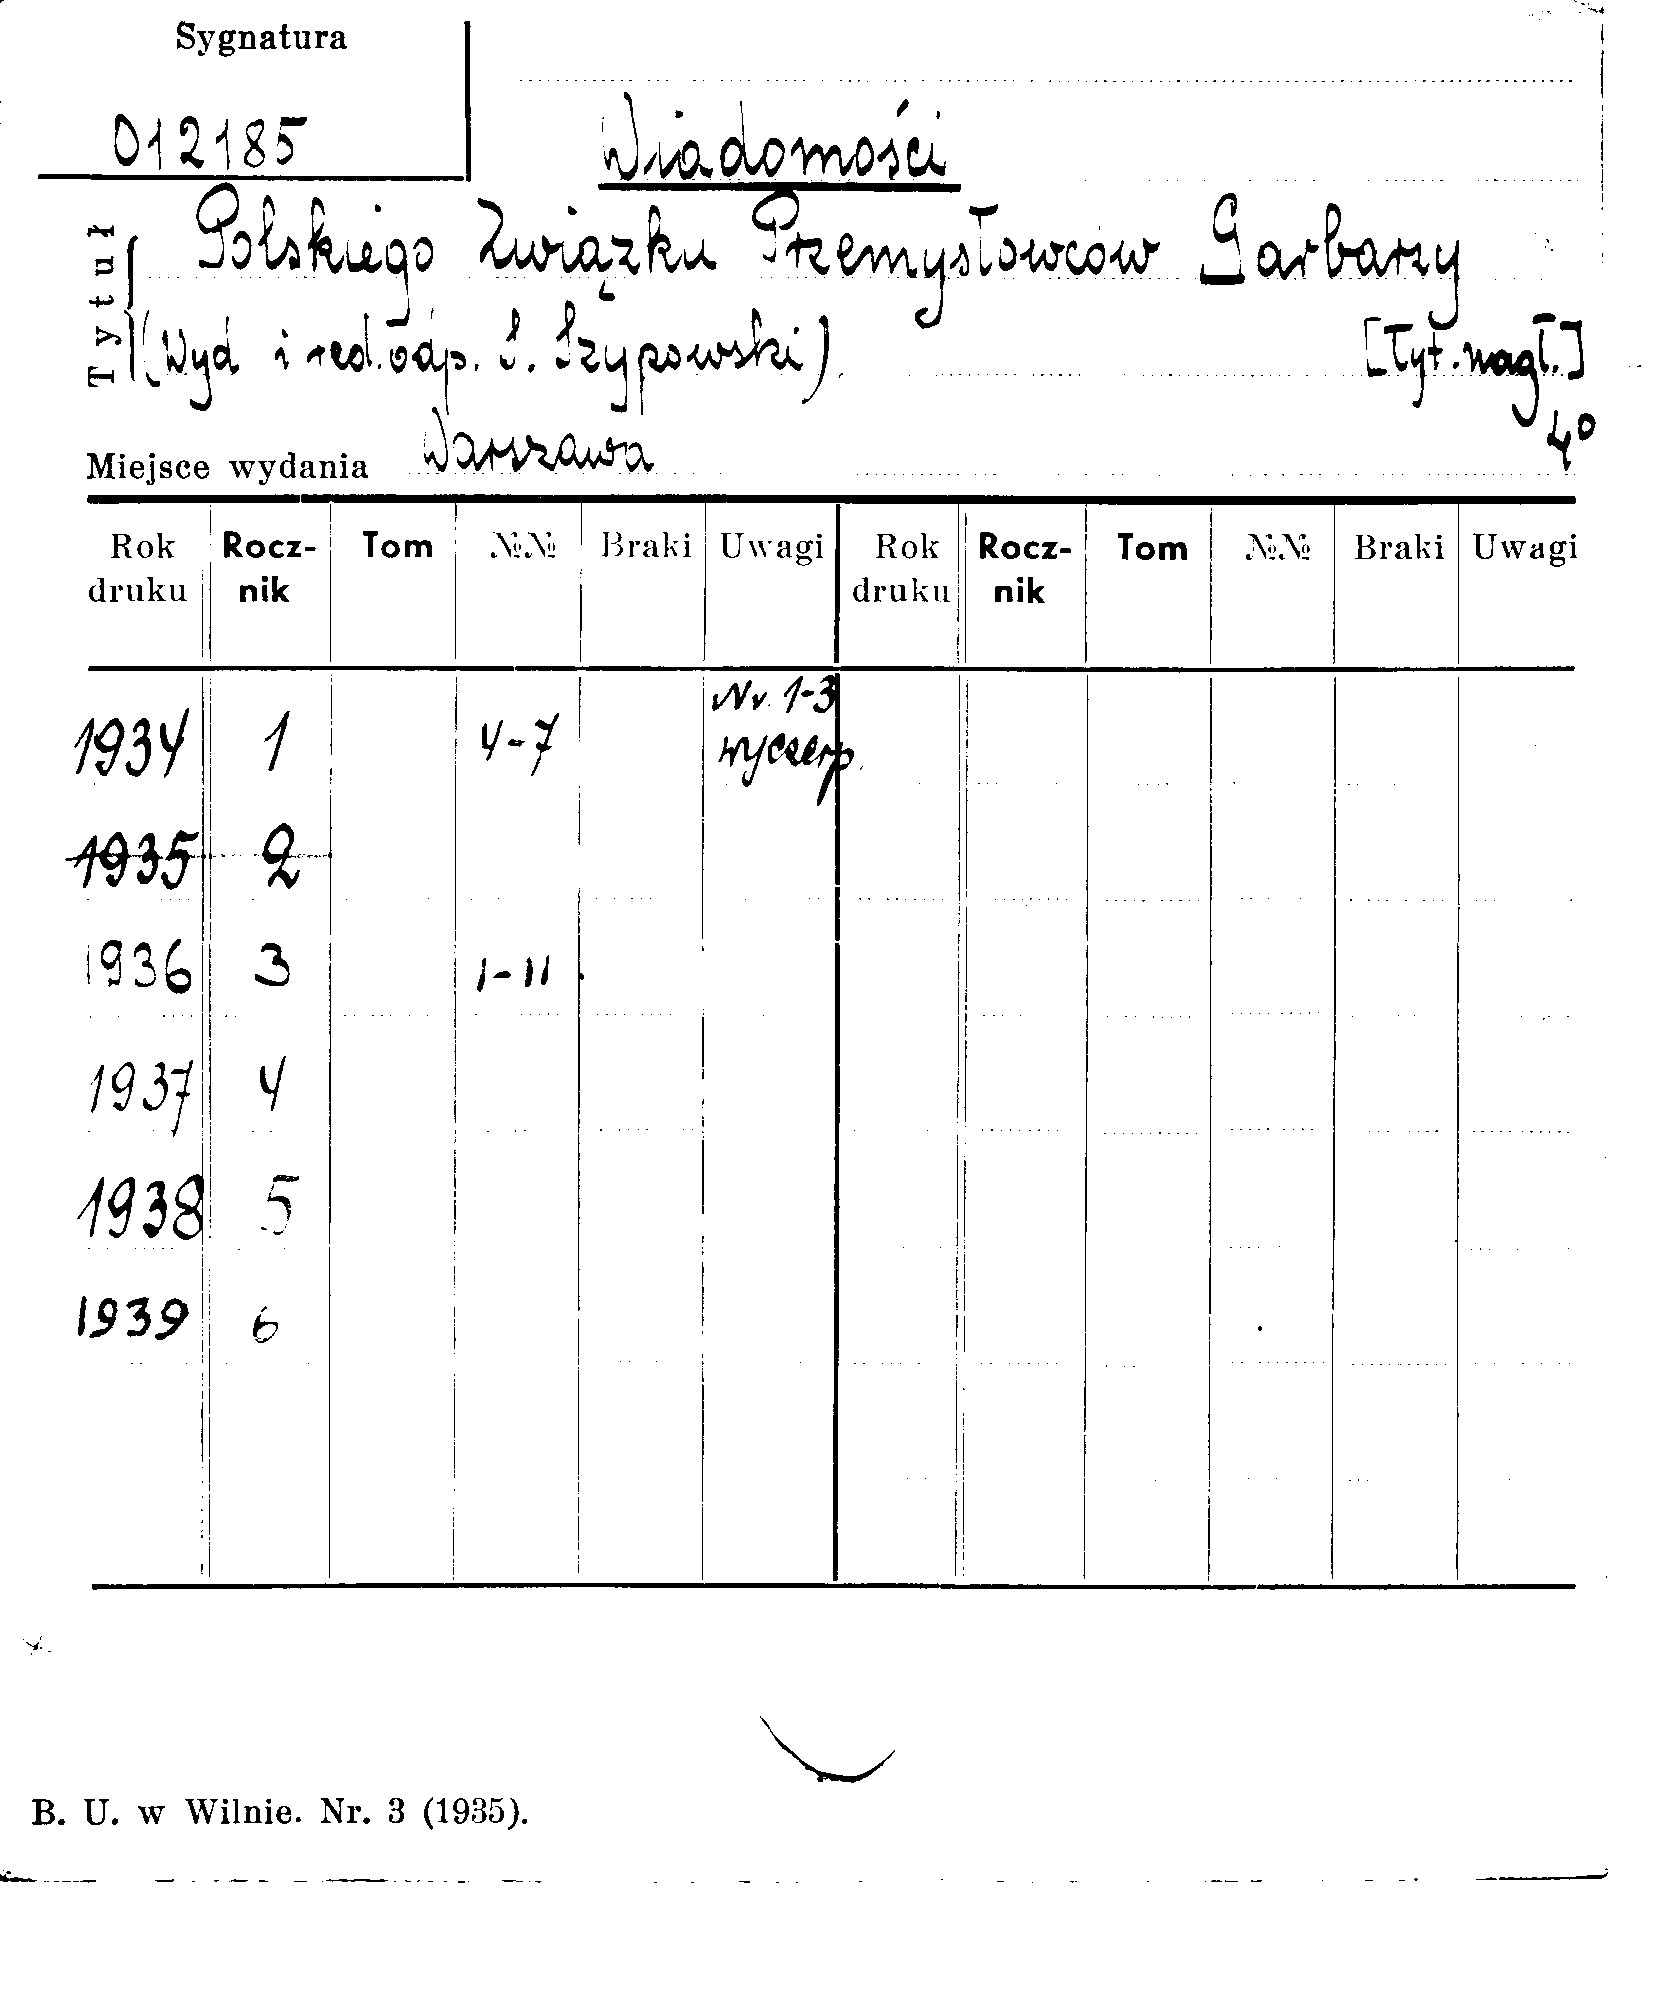 Sygnatura
012185
Wiadomości
Tytuł
Polskiego Związku Przemysłowców Garbarzy
(Wyd i red. odp. S. Szypowski) [Tyt. nagł.]
4º
Miejsce wydania Warszawa
Rok druku Rocz-nik Tom №№ Braki Uwagi Rok druku Rocz-nik Tom №№ Braki Uwagi
1934 1 4-7 Nr. 1-3 wyczerp.
1935 2
1936 3 1-11
1937 4
1938 5
1939 6
B. U. w Wilnie. Nr. 3 (1935).